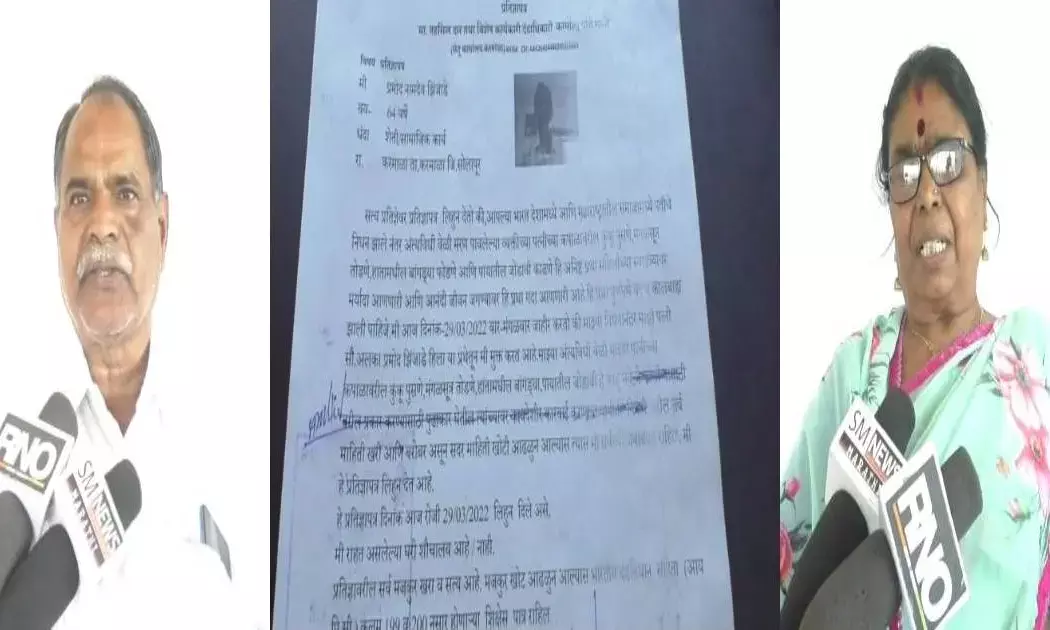 प्रतिज्ञापत्र
मा. तहसिल दार तथा विशेष कार्यकारी दंडाधिकारी करमाळा यांचे
विषय प्रतिज्ञापत्र
मी प्रमोद नामदेव झिंजाडे
वय- 64 वर्षे
धंदा शेती,सामाजिक कार्य
रा. करमाळा ता.करमाळा जि.सोलापूर
सत्य प्रतिज्ञेवर प्रतिज्ञापत्र लिहुन देतो की,आपल्या भारत देशामध्ये आणि महाराष्ट्रातील समाजामध्ये पतीचे
निधन झाले नंतर अंत्यविधी वेळी मरण पावलेल्या व्यक्तीच्या पत्नीच्या कपाळावरील कुंकू पुसणे,मंगळसूत्र
तोडणे,हातामधील बांगड्या फोडणे आणि पायातील जोडावी काढणे हि अनिष्ट प्रथा महिलांच्या
मर्यादा आणणारी आणि आनंदी जीवन जगण्यावर हि प्रथा गदा आणणारी आहे हि प्रथा
झाली पाहिजे.मी आज दिनांक-29/03/2022 वार-मंगळवार जाहीर करतो की माझ्या निधनानंतर माझी पत्नी
सौ.अलका प्रमोद झिंजाडे हिला या प्रथेतून मी मुक्त करत आहे.माझ्या अंत्यविधी वेळी माझ्या पत्नीच्या
कपाळावरील कुंकू पुसणे,मंगळसूत्र तोडणे,हातामधील बांगड्या,पायातील जोडावी
माहिती खरी आणि बरोबर असून सदर माहिती खोटी आढळुन आल्यास त्यास मी राहिल. मी
हे प्रतिज्ञापत्र लिहुन देत आहे.
हे प्रतिज्ञापत्र दिनांक आज रोजी 29/03/2022 लिहुन दिले असे,
मी राहत असलेल्या घरी शौचालय आहे / नाही.
प्रतिज्ञावरील सर्व मजकुर खरा व सत्य आहे. मजकुर खोट आढळुन आल्यास भारतीय संहिता (आय
पि.सी.) कलम 199 व 200 नुसार होणाऱ्या शिक्षेस पात्र राहिल
RNO
SM NEWS
SM NEWS
MARATHI
RNO